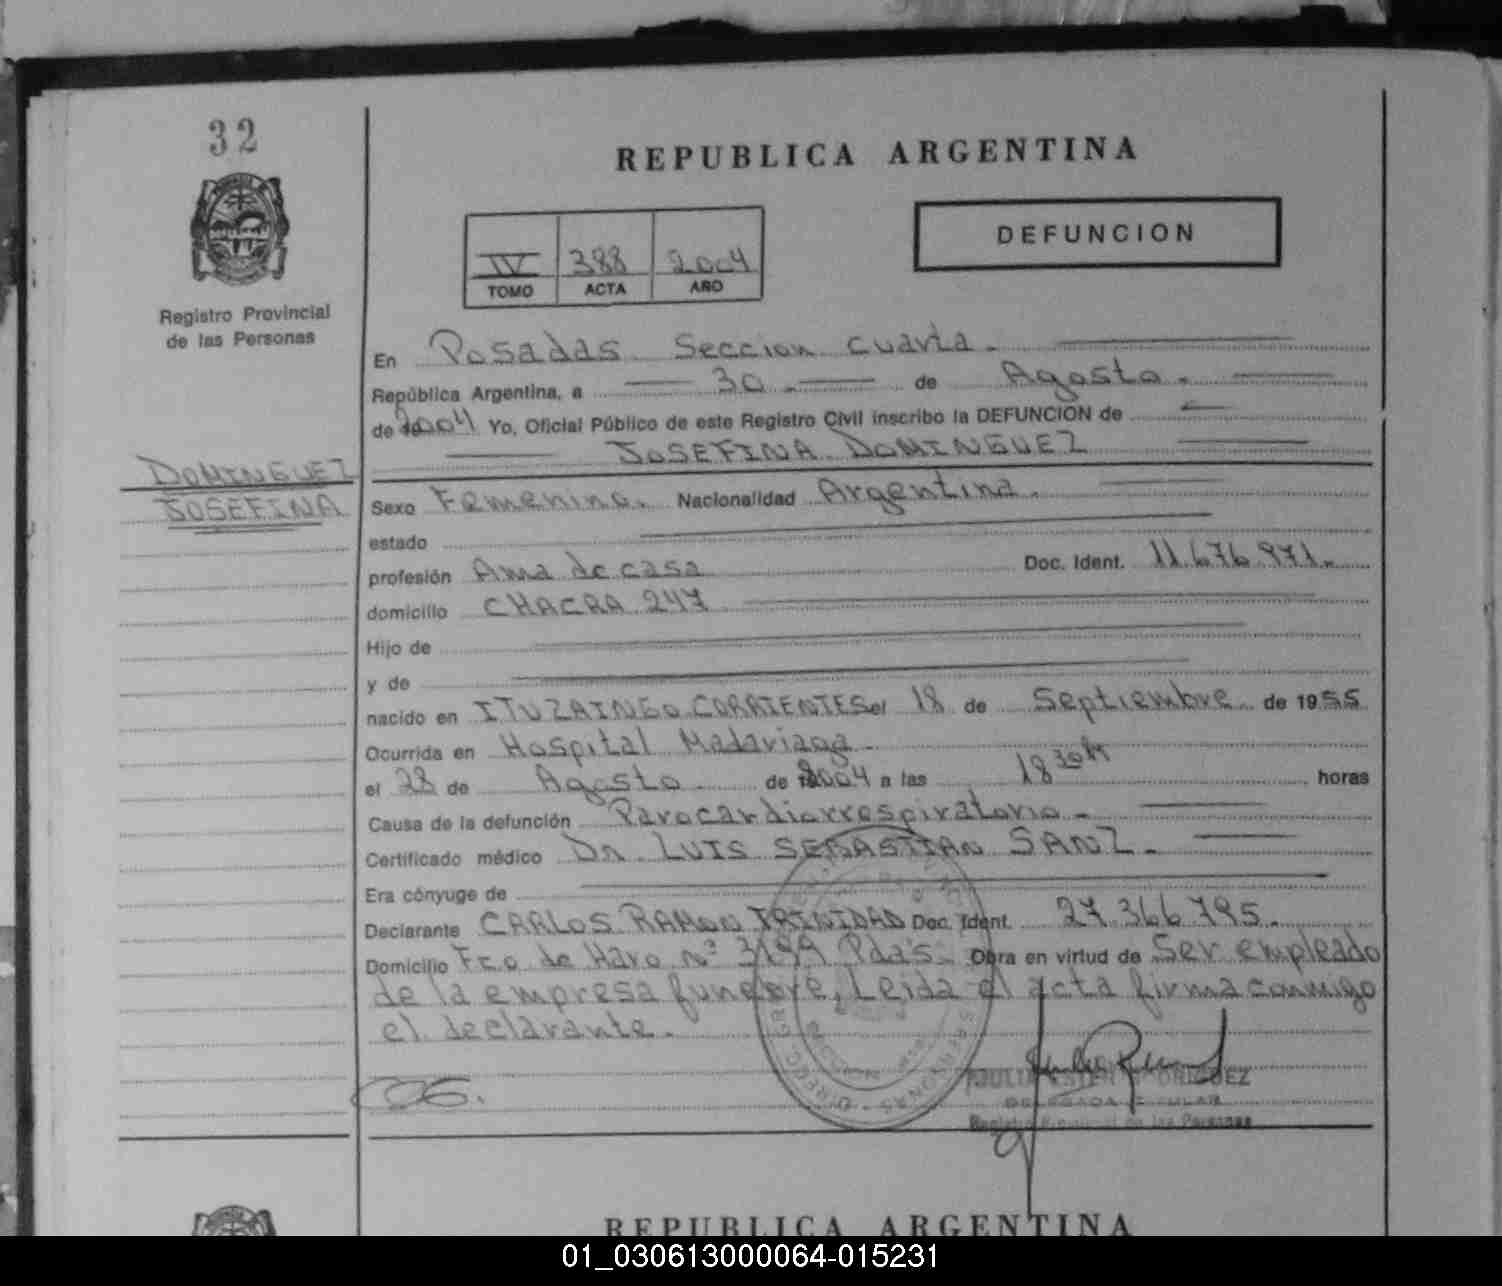 32
REPUBLICA ARGENTINA
DEFUNCION
IV 388 2004
TOMO ACTA AÑO
Registro Provincial
de las Personas
En Posadas Seccion cuarta.
República Argentina, a 30 de Agosto.
de 2004 Yo, Oficial Público de este Registro Civil inscribo la DEFUNCION de
JOSEFINA DOMINGUEZ
DOMINGUEZ
JOSEFINA
Sexo Femenino. Nacionalidad Argentina.
estado
profesión Ama de casa Doc. Ident. 11.676.971.
domicilio CHACRA 247
Hijo de
y de
nacido en ITUZAINGO CORRIENTES el 18 de Septiembre de 1955
Ocurrida en Hospital Madariaga.
el 28 de Agosto de 2004 a las 18 30 horas
Causa de la defunción Parocardiorrespiratorio.
Certificado médico Dr. LUIS SEBASTIAN SANZ.
Era cónyuge de
Declarante CARLOS RAMON TRINIDAD Doc. Ident. 27.366.795.
Domicilio Fco de Haro nº 3199 Pdas. Obra en virtud de Ser empleado
de la empresa funebre, Leida el acta firma conmigo
el declarante.
JULIA ESTER RODRIGUEZ
DELEGADA TITULAR
Registro Provincial de las Personas
REPUBLICA ARGENTINA
01_030613000064-015231